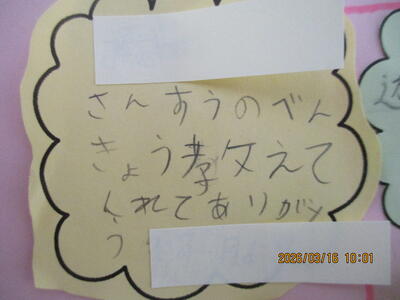 さんすうのべん
きょう教えて
くれてありがと
う
2026/03/16 10:01